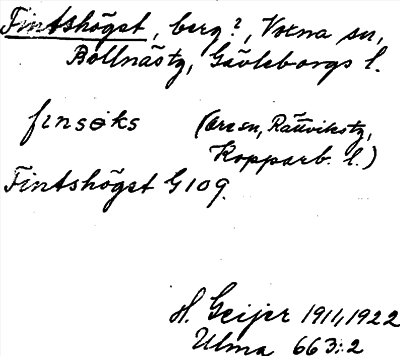 Fintshögst, berg?, Voxna sn,
Bollnästg, Gävleborgs l.
finsøks (Ore sn, Rättvikstg,
Kopparb. l.)
Fintshögst G109.
H. Geijer 1911, 1922
Ulma 663:2